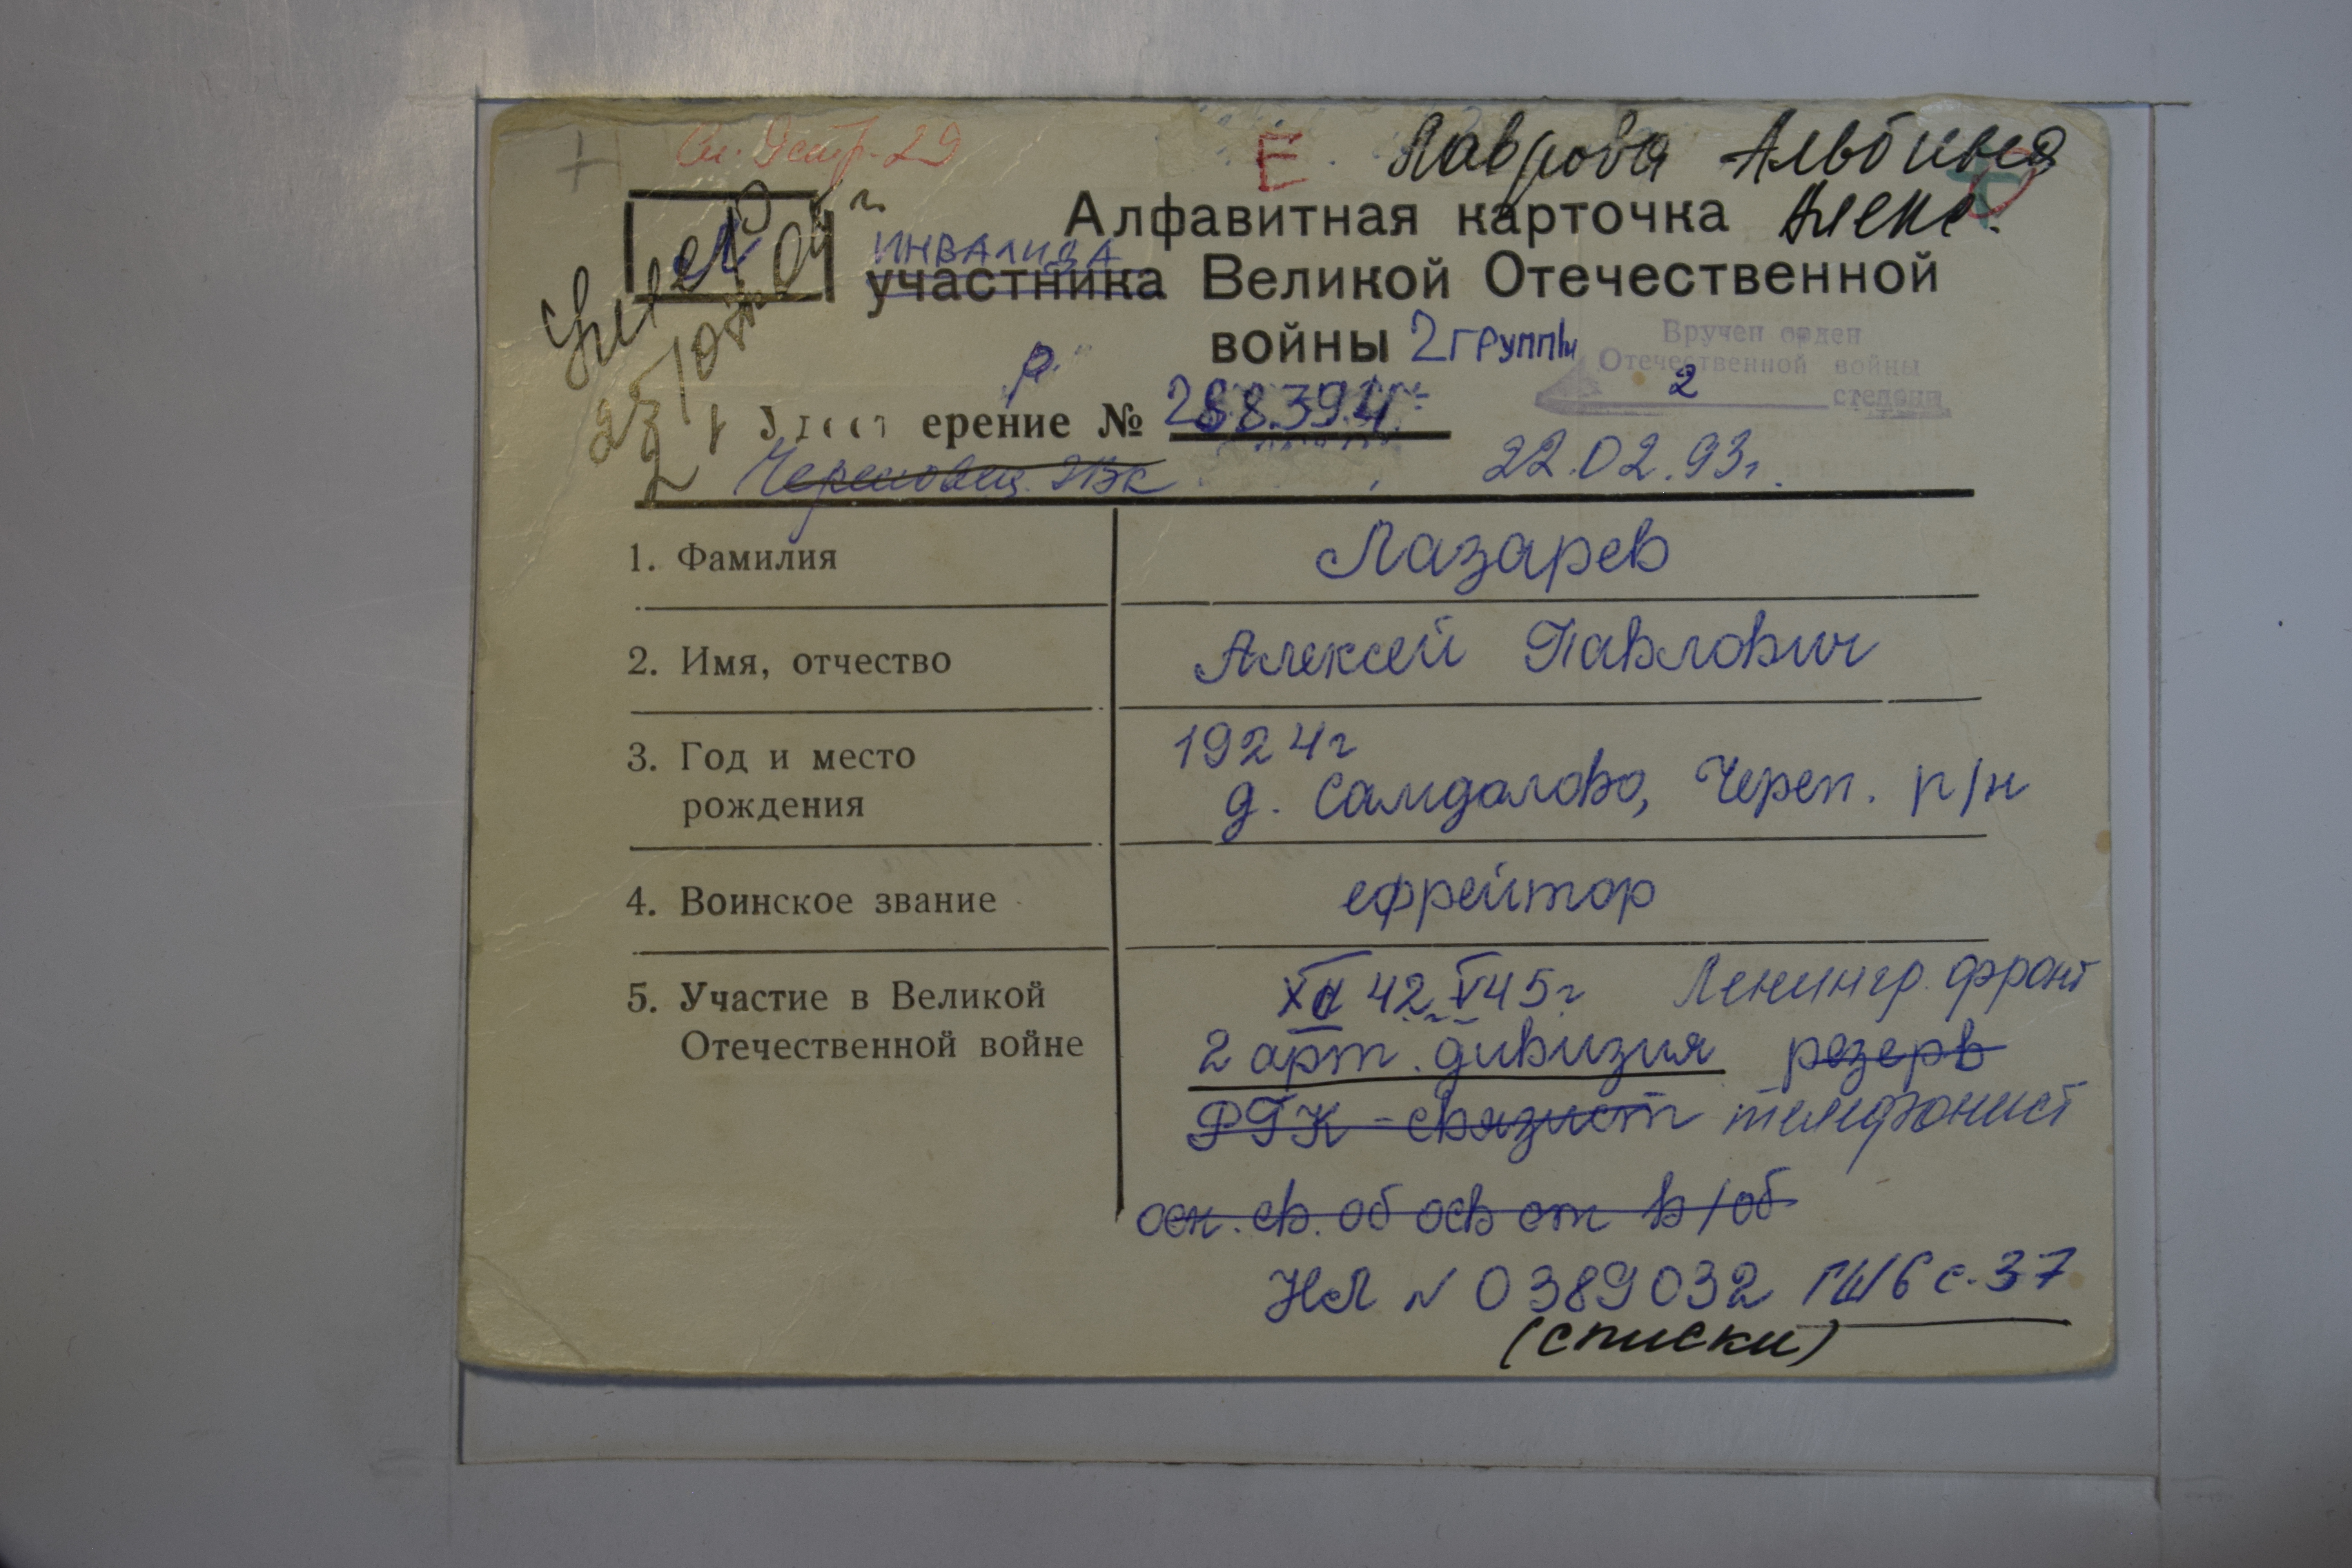 Е Лаврова Альбина
Алекс.
Алфавитная карточка
ИНВАЛИДА
участника Великой Отечественной
войны 2 группы
Вручен орден
Отечественной войны
2 степени
ерение № 288394
Череповец. 22.02.93г.
1. Фамилия Лазарев
2. Имя, отчество Алексей Павлович
3. Год и место рождения 1924г
д. Самдалово, Череп. р/н
4. Воинское звание ефрейтор
5. Участие в Великой Отечественной войне
42 V 45г Ленингр. фронт
2 арт. дивизия резерв
РГК - связист телефонист
осн. св. об осв от в/об
НЛ № 0389032 с. 37
(списки)